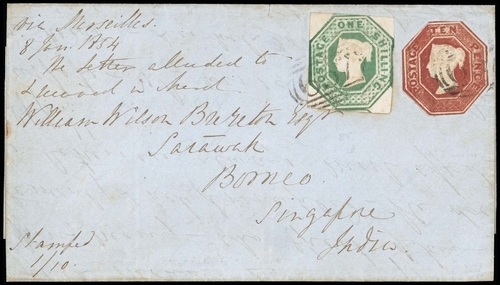 via Marseilles.
8 Jan. 1854
the letter alluded to
received in March
William Wilson Brereton Esqr
Sarawak
Borneo.
Singapore
India.
Stamped
1/10.
POSTAGE ONE SHILLING
POSTAGE TEN PENCE